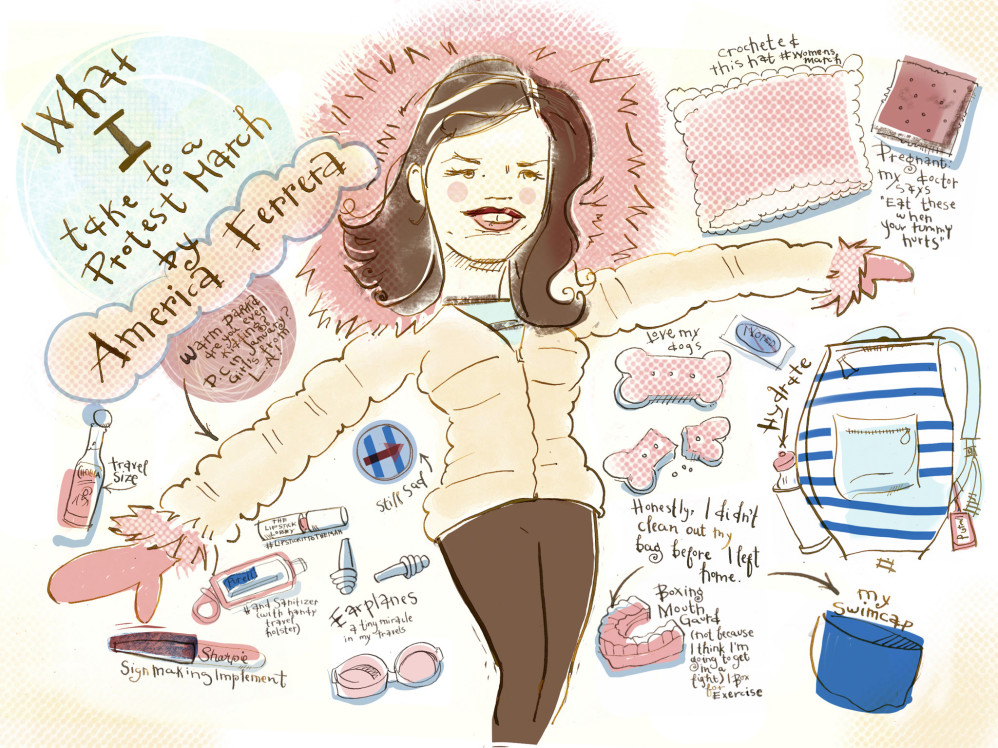 What
I
take to a
Protest March
by
America Ferrera
Warm parka
are you not even
D.C. in January?
Girl's
travel
size
CHOLULA
THE
LIPSTICK
LOBBY
Still sad
H
Purell
Hand Sanitizer
(with handy
travel
holster)
Earplanes
a tiny miracle
in my travels
Sharpie
Sign making implement
crocheted
this hat #womens
march
Pregnant:
my doctor
says
"Eat these
when
your tummy
hurts"
Love my
dogs
I VOTED
Hydrate
Honestly, I didn't
clean out my
bag before I left
home.
Boxing
Mouth
Gaurd
(not because
I think I'm
going to get
in a
fight) I Box
for
Exercise
my
swimcap